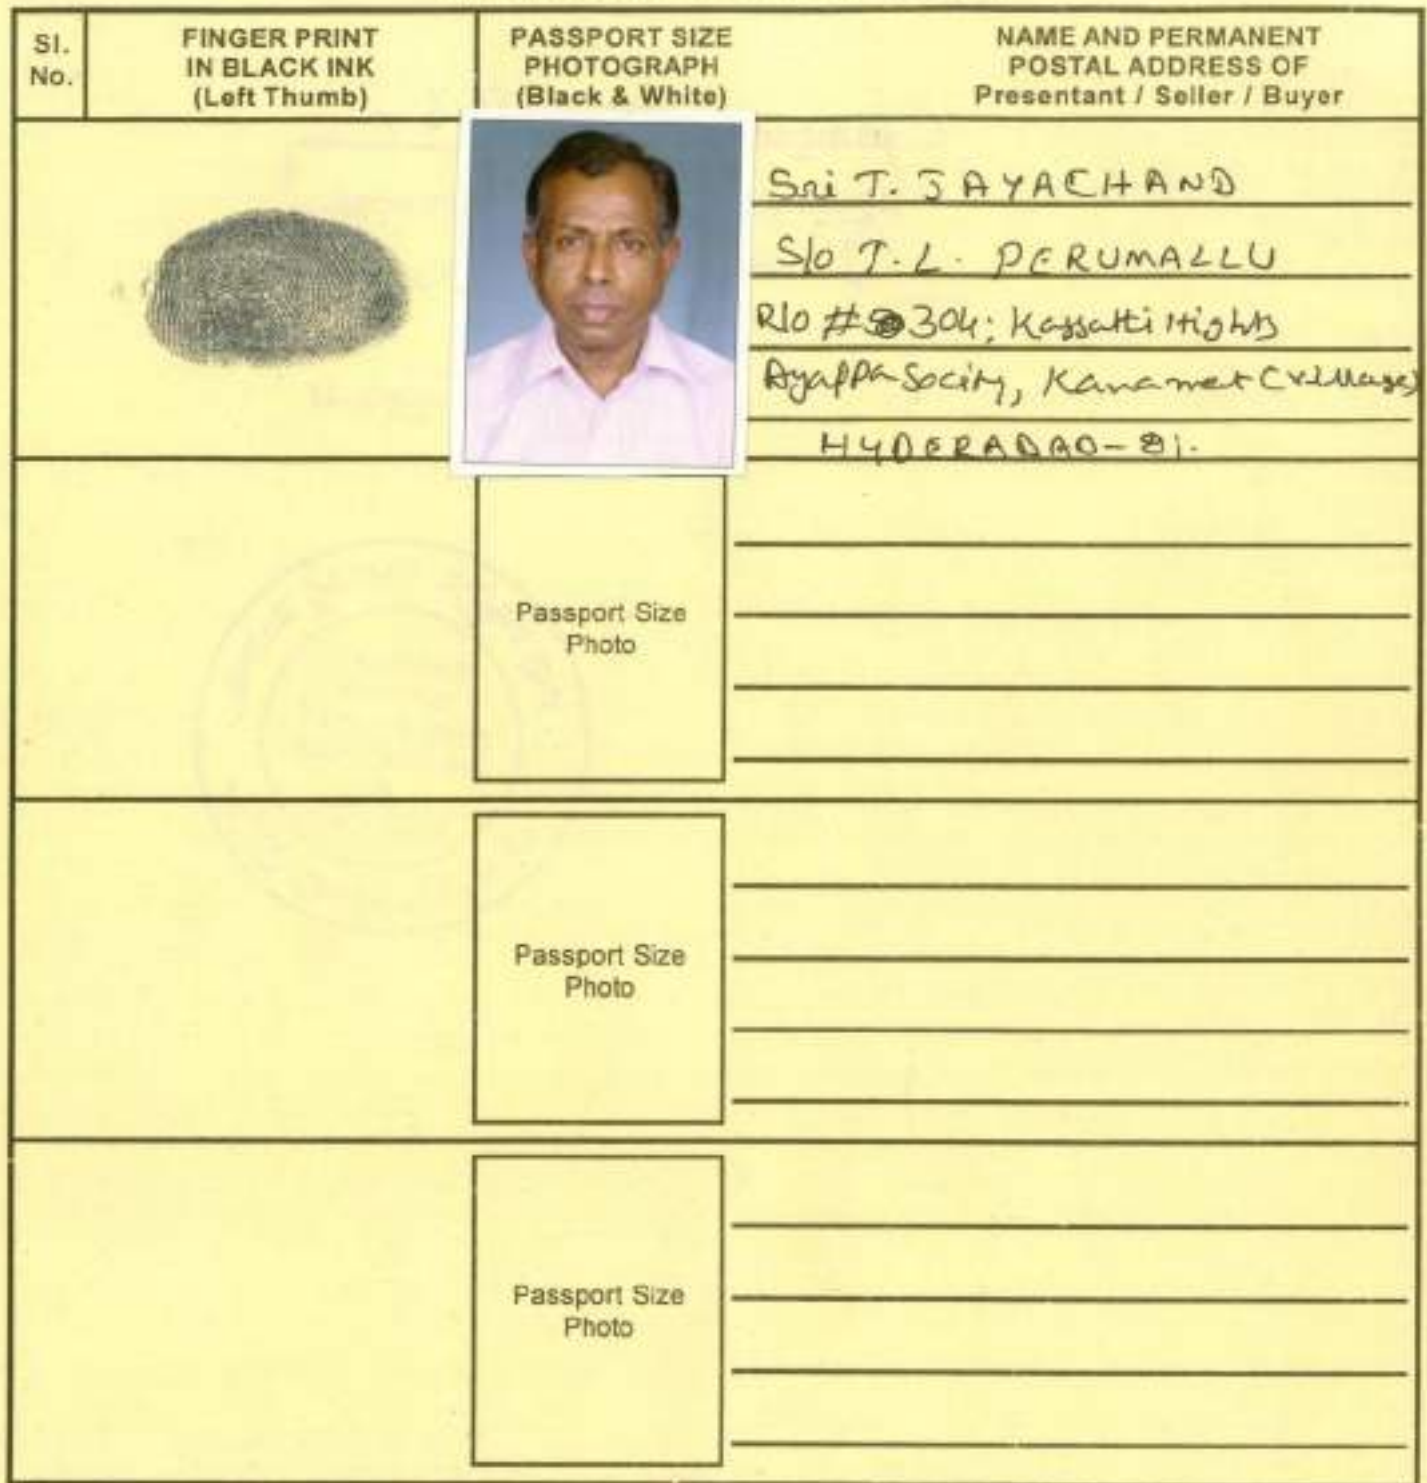 Sl.
No.
FINGER PRINT
IN BLACK INK
(Left Thumb)
PASSPORT SIZE
PHOTOGRAPH
(Black & White)
NAME AND PERMANENT
POSTAL ADDRESS OF
Presentant / Seller / Buyer
Sri T. JAYACHAND
S/o T. L. PERUMALLU
R/o # 304; Kassatti Hights
Ayappa Socity, Kanamet (village)
HYDERABAD-81.
Passport Size
Photo
Passport Size
Photo
Passport Size
Photo